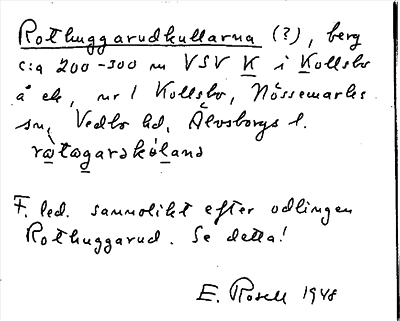 Rothuggarudkullarna (?), berg
c:a 200-300 m VSV K i Kollsbo
å ek, nr 1 Kollsbo, Nössemarks
sn, Vedbo hd, Älvsborgs l.
F. led. sannolikt efter odlingen
Rothuggarud. Se detta!
E. Rosell 1948